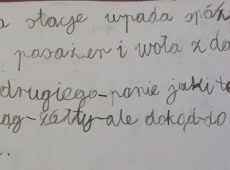 a stację wpada spóź
pasażer i woła z da
drugiego-panie jaki to
ąg-żółty-ale dokąd-do
..